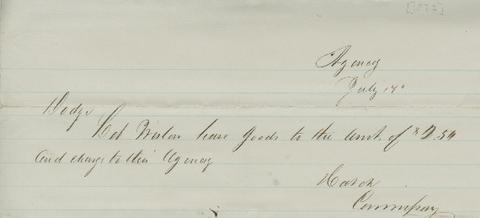 Agency
July 17
Dodge
Let have goods to the amt. of $2.54
and charge to this Agency
Hatch
Commissary